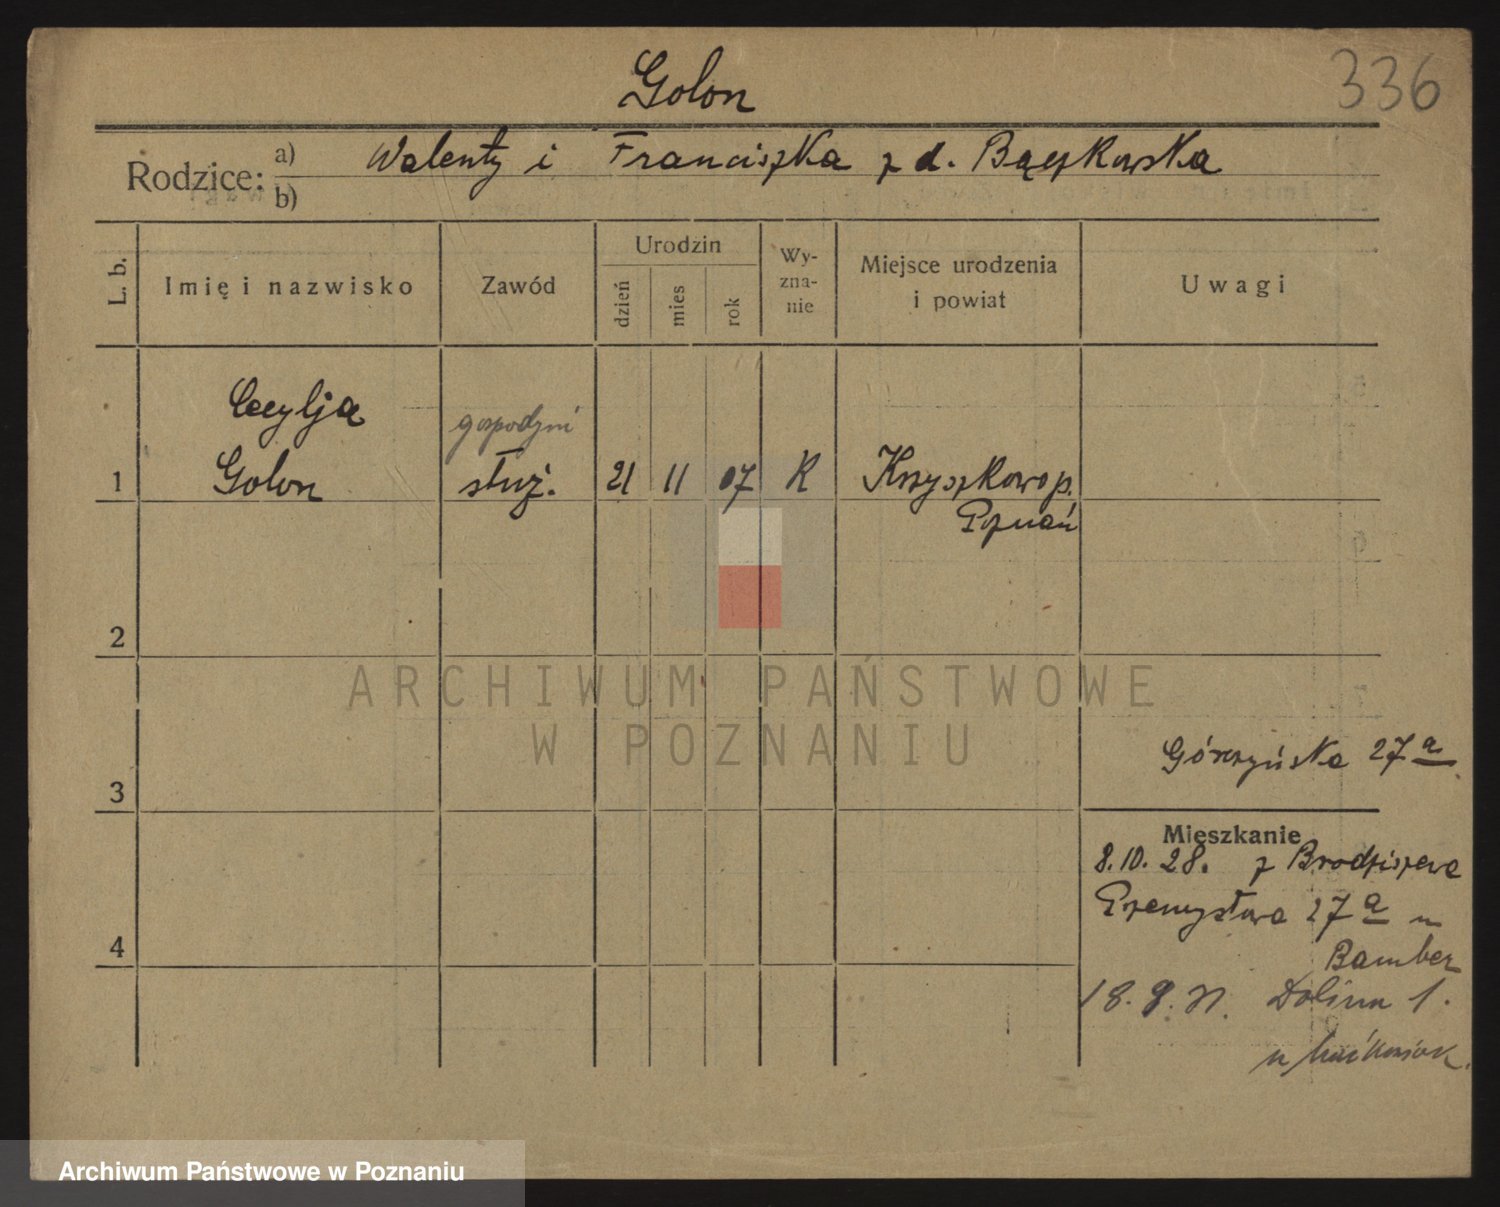 Golon
336
Rodzice:
a) Walenty i Franciszka z d. Bączkowska
b)
L. b.
Imię i nazwisko
Zawód
Urodzin
dzień
mies
rok
Wy-
zna-
nie
Miejsce urodzenia
i powiat
Uwagi
Cecylja
gospodyni
1 Golon służ. 21 11 07 K Krzyszkowo p.
Poznań
2
ARCHIWUM PAŃSTWOWE
W POZNANIU
Górczyńska 27a
3
Mieszkanie
8.10.28. z Brodziszewa
Przemysława 27a u
4
Bamber
18.9.31. Dolina 1.
u
Archiwum Państwowe w Poznaniu